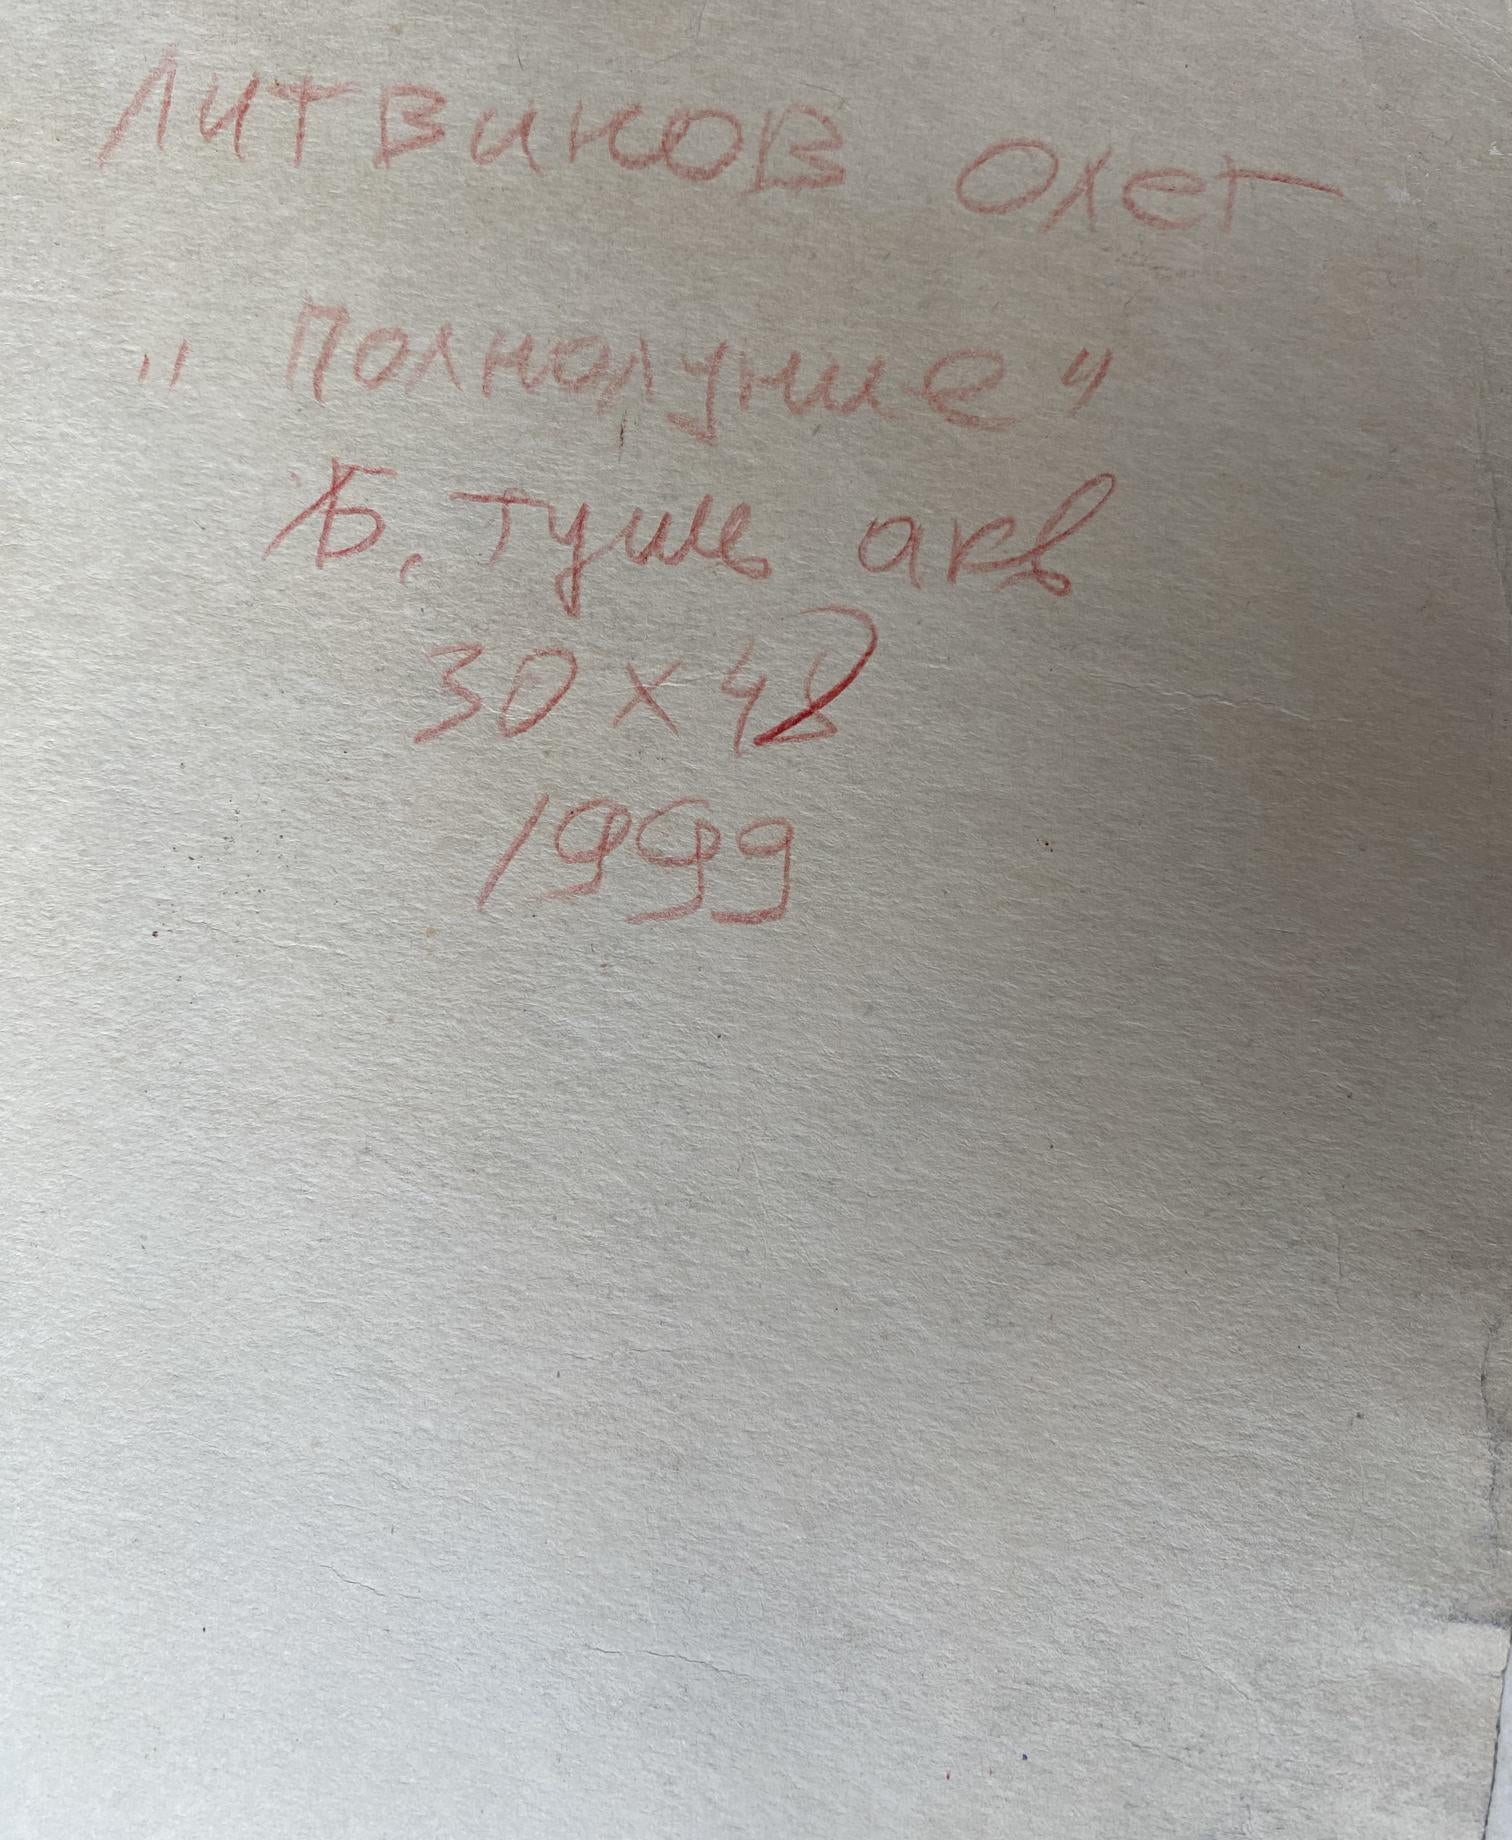 Литвинов Олег
„ Полнолуние "
Б. тушь акв
30 х 48
1999